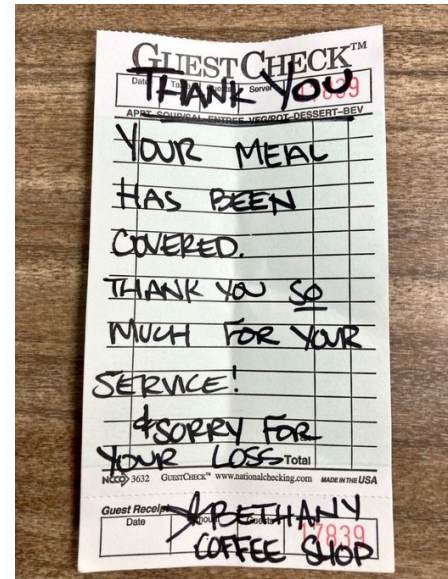 GUESTCHECK™
Date Server 17839
THANK YOU
APPT-SOUP/SAL-ENTREE-VEG/POT-DESSERT-BEV
YOUR MEAL
HAS BEEN
COVERED.
THANK YOU SO
MUCH FOR YOUR
SERVICE!
& SORRY FOR
YOUR LOSS
Total
NCCO 3632 GUESTCHECK™ www.nationalchecking.com MADE IN THE USA
Guest Receipt
BETHANY
Date Amount Guests 17839
COFFEE SHOP